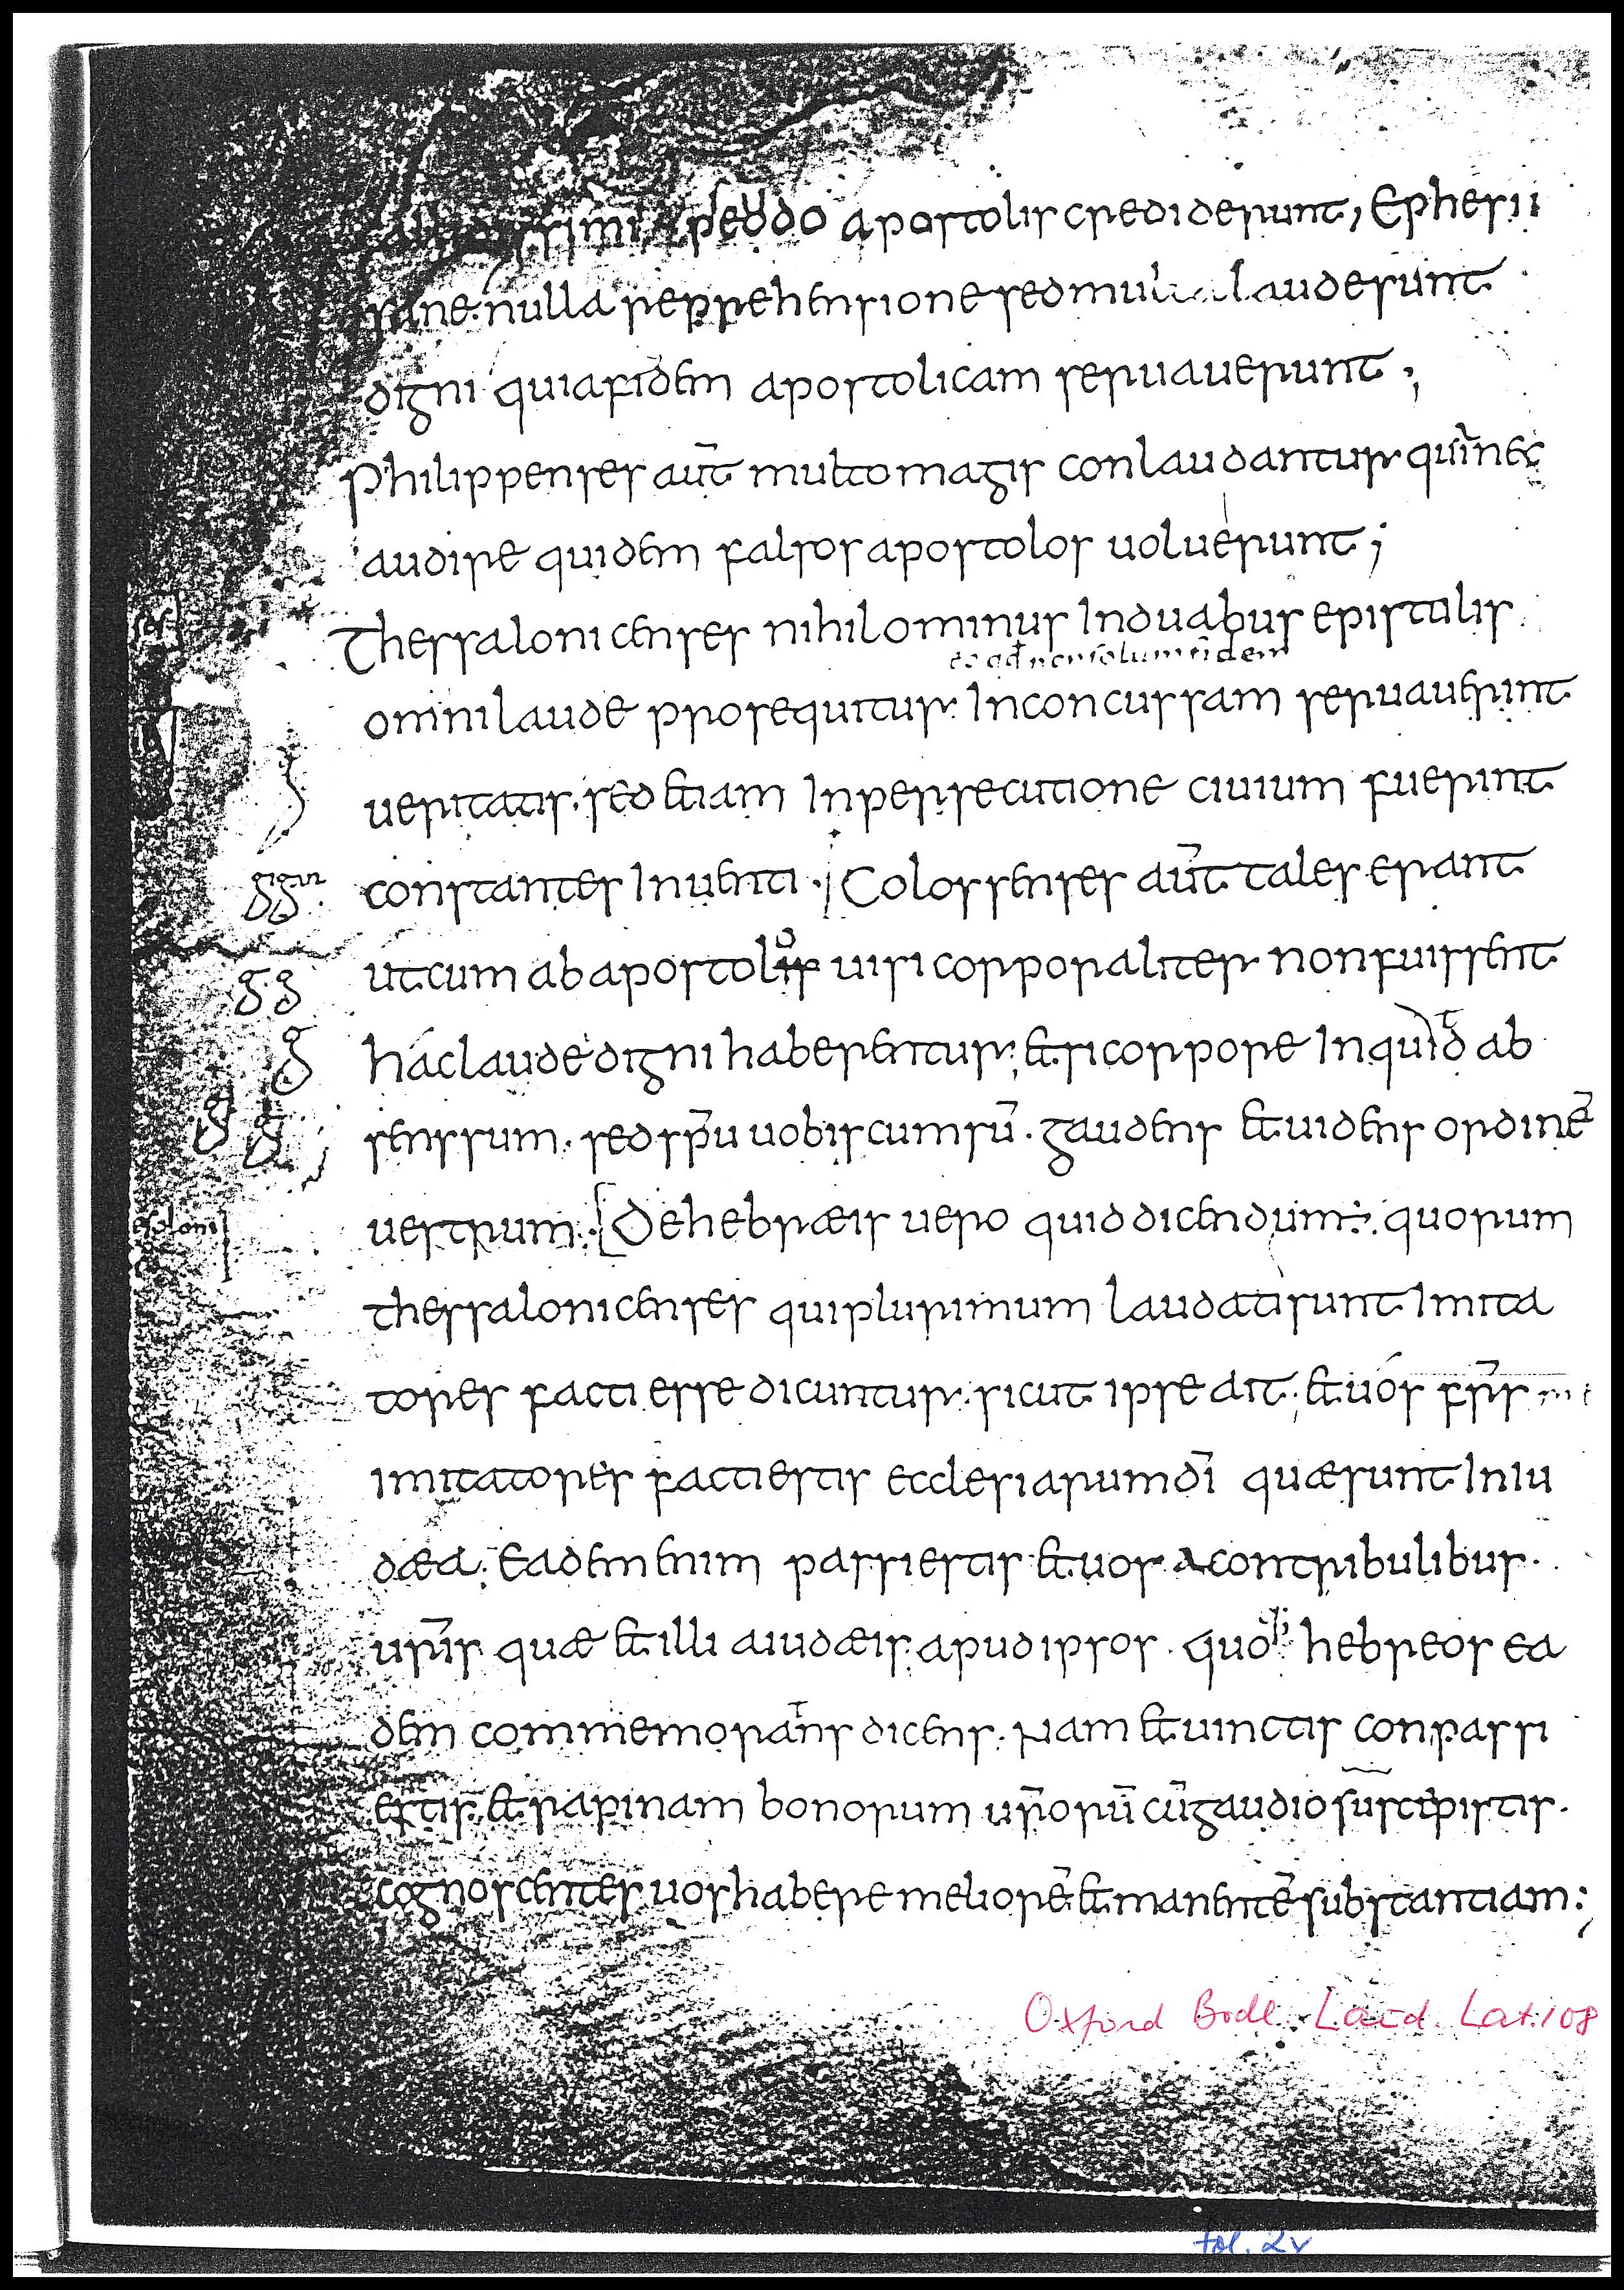 simi pseudo apostolis crediderunt, Ephesii
sane nulla reprehensione sed mul laude sunt
digni quia fidem apostolicam seruauerunt;
Philippenses aūt multo magis conlaudantur qui nec
audire quidem falsos apostolos uoluerunt;
Thessalonicenses nihilominus In duabus epistulis
eo qđ non solum fidem
omni laude prosequitur Inconcussam seruauerint
ueritatis. sed etiam In persecutione ciuium fuerint
constantes Inuenti. Colossenses aūt tales erant
ut cum ab apostolo uisi corporaliter non fuissent
hác laude digni haberentur; et si corpore Inquid ab
sensum. sed spū uobiscum sū. gaudens et uidens ordinē
uestrum. De hebræis uero quid dicendum. quorum
thessalonicenses qui plurimum laudati sunt Imita
tores facti esse dicuntur. sicut ipse ait; et uós frs
imitatores facti estis ecclesiarum dī quæ sunt In iu
dæa. Eadem enim passi estis et uos a contribulibus.
uris quæ et illi a iudæis. apud ipsos. quoq; hebreos ea
dem commemorans dicens. Nam et uinctis conpassi
estis. et rapinam bonorum urorū cū gaudio suscepistis.
cognoscentes uos habere meliorē et manentē substantiam;
g g m
g g
g
g g
Oxford Bodl. Laud. Lat. 108
fol. 2v